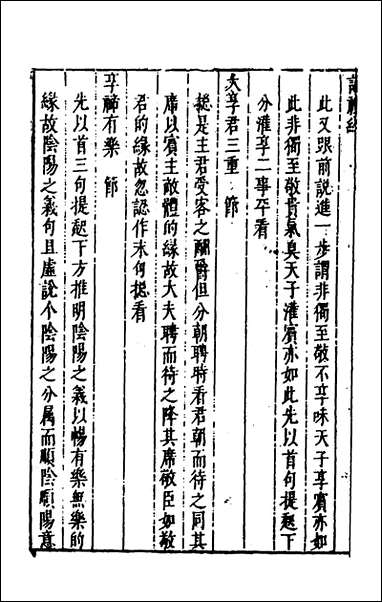 說禮約
此又跟前說進一步謂非獨至敬不享味天子享賓亦如
此非獨至敬貴氣臭天子灌賓亦如此先以首句提起下
分灌享二事平看
大享君三重　節
揔是主君受客之酢爵但分朝聘時看君朝而待之同其
席以賓主敵體的緣故大夫聘而待之降其席敬臣如敬
君的緣故忽認作末句揔看
享禘有樂　節
先以首三句提起下方推明陰陽之義以暢有樂無樂的
緣故陰陽之義句且虛說个陰陽之分屬而順陰順陽意